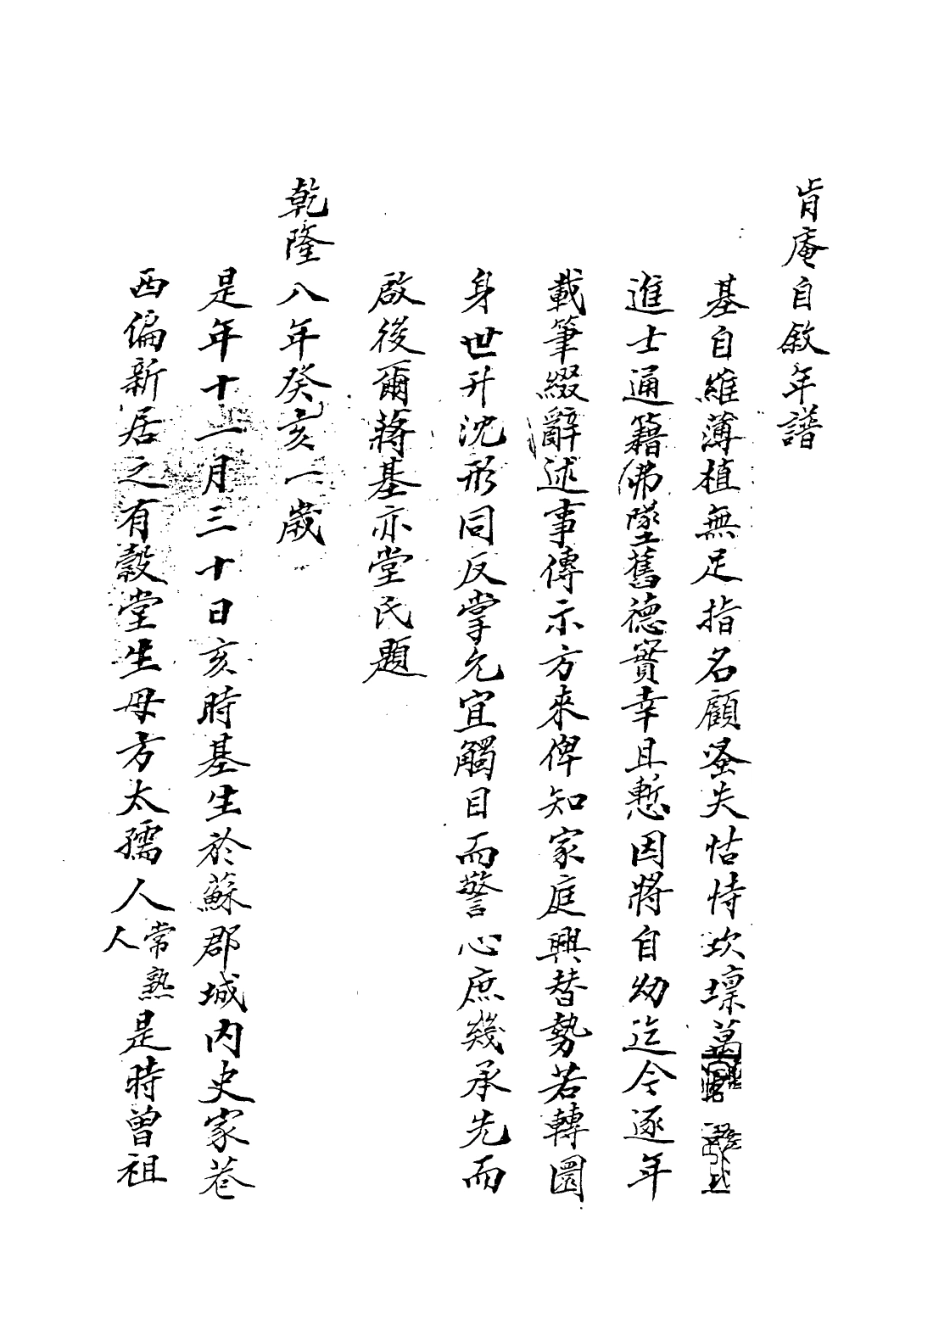 肯庵自敘年譜
基自維薄植無足指名顧蚤失怙恃坎壈萬
進士通籍佛墜舊德實幸且慙因將自幼迄今逐年
載筆綴辭述事傳示方來俾知家庭興替勢若轉圜
身世升沈形同反掌允宜觸目而警心庶幾承先而
啟後爾蔣基亦堂氏題
乾隆八年癸亥一歲
是年十一月三十日亥時基生於蘇郡城内史家巷
西偏新居之有穀堂生母方太孺人常熟人是時曾祖